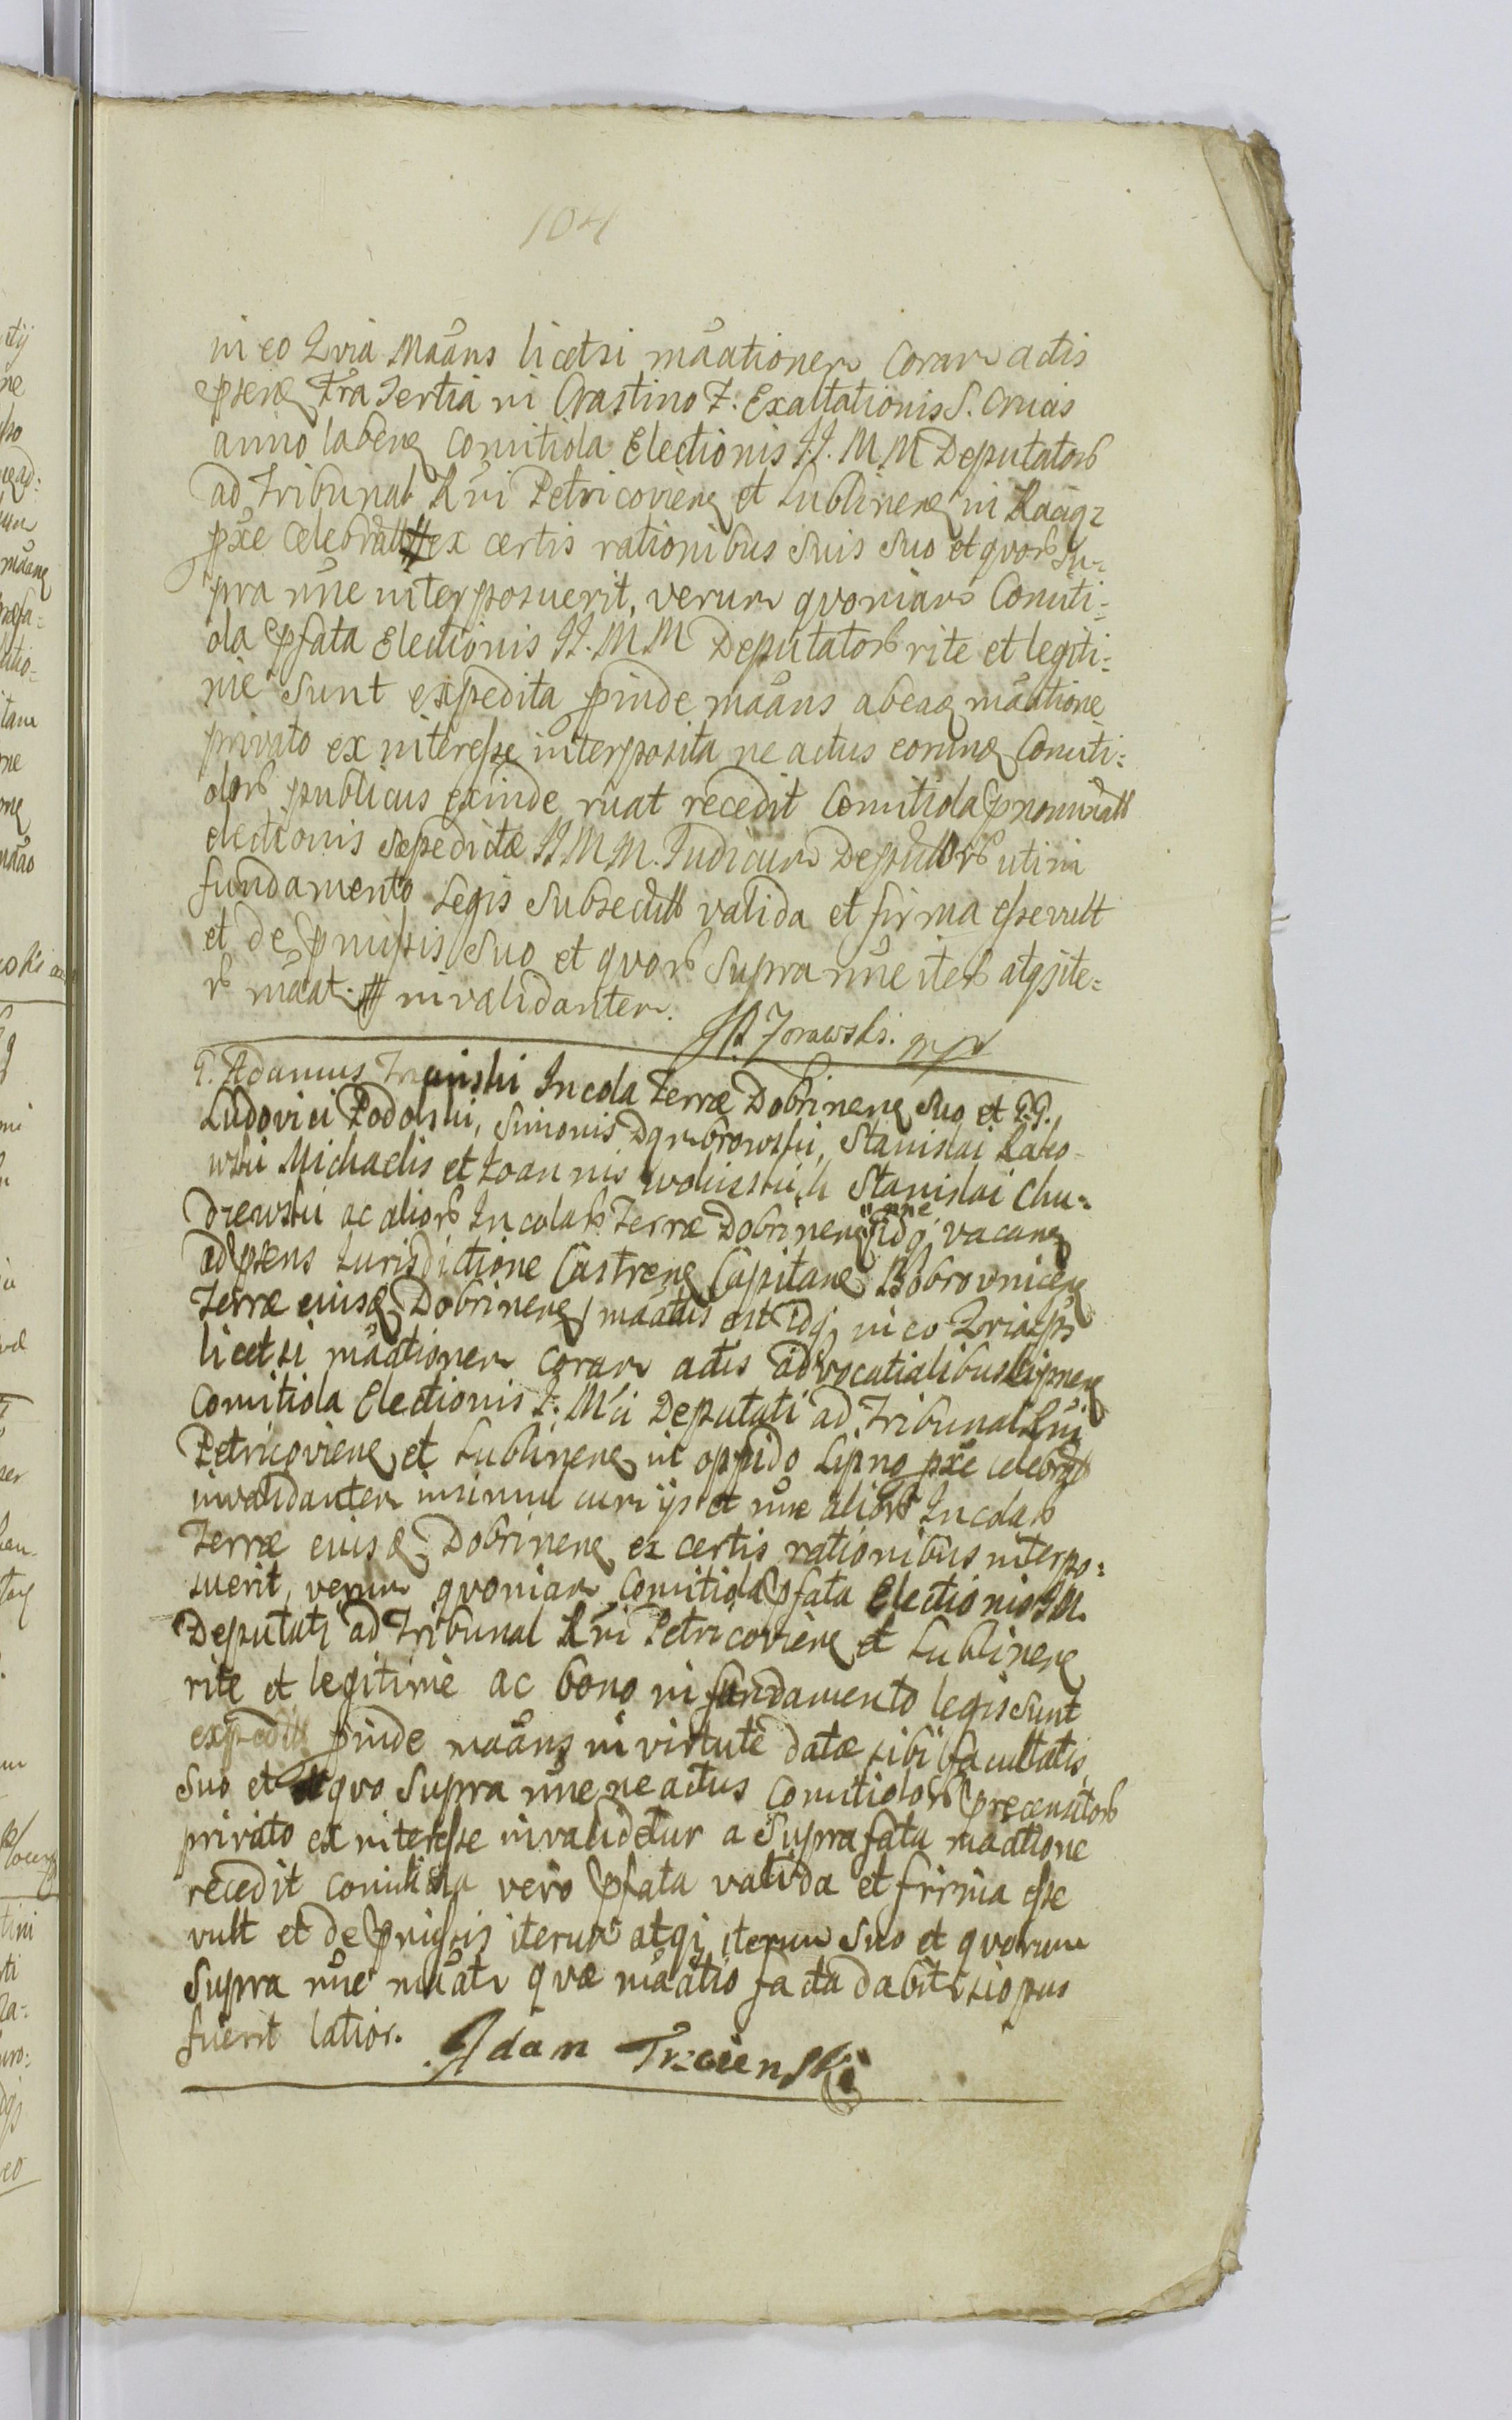 104
in eo Qvia Maans licetsi maationem coram actis
pseng Fra tertia in Crastino F. Exaltationis S. Crucis
anno labeng comitiola Electionis I.I. M M Deputatorb
ad Tribunal Rni Petricovieng et Lublineng in Raciąz
pxe celebratt ex certis rationibus suis suo et qvorb su-
pra nne interposuerit, verum qvoniam Comiti=
ola pfata Electionis II. M M Deputatorb rite et legiti=
me sunt expedita pinde maans ab eaq maatione
privato ex interesse interposita ne actus eorunq Comiti=
olorb publicus exinde ruat recedit Comitiola pnominatt
electionis sæpedictæ II M M. Judicum Deputtorb uti in
fundamento Legis subsecutt valida et firma esse vult
et de pmissis suo et qvorb supra nne iterb atqz ite=
rb maat. invalidantem.
Zorawski. mp
G. Adamus Trzcinski Incola Terræ Dobrineng suo et G.G.
Ludovici Podolski, Simonis Dąmbrowski, Stanislai Rako-
wski Michaelis et Joannis Stanislai Chu=
drewski ac aliorb Incolarb Terræ Dobrineng nne idq vacang
ad psens Jurisdictione Castreng Capitane Bobrovniceng
Terræ eiusq Dobrineng maatus est idq in eo Qvia ps
licetsi maationem coram actis advocatialibus Lipneng
Comitiola Electionis I. Mci Deputati ad Tribunal Rni
Petricovieng et Lublineng in oppido Lipno pxe celebratt
invalidantem insimul cum ijs et nne aliorb Incolarb
Terræ eiusq Dobrineng ex certis rationibus interpo=
suerit, verum qvoniam Comitiola pfata Electionis I M.
Deputati ad Tribunal Rni Petricovieng et Lublineng
rite et legitime ac bono in fundamento legis sunt
expeditt pinde maans in virtute datæ sibi facultatis
suo et qvo supra nne ne actus Comitiolorb precensitorb
privato ex interesse invalidetur a suprafata maatione
recedit comitiola vero pfata valida et firma esse
vult et de pmissis iterum atqz iterum suo et qvorum
supra nne maatr qvæ maatio facta dabitr si opus
fuerit latior. Adam Trzcienski